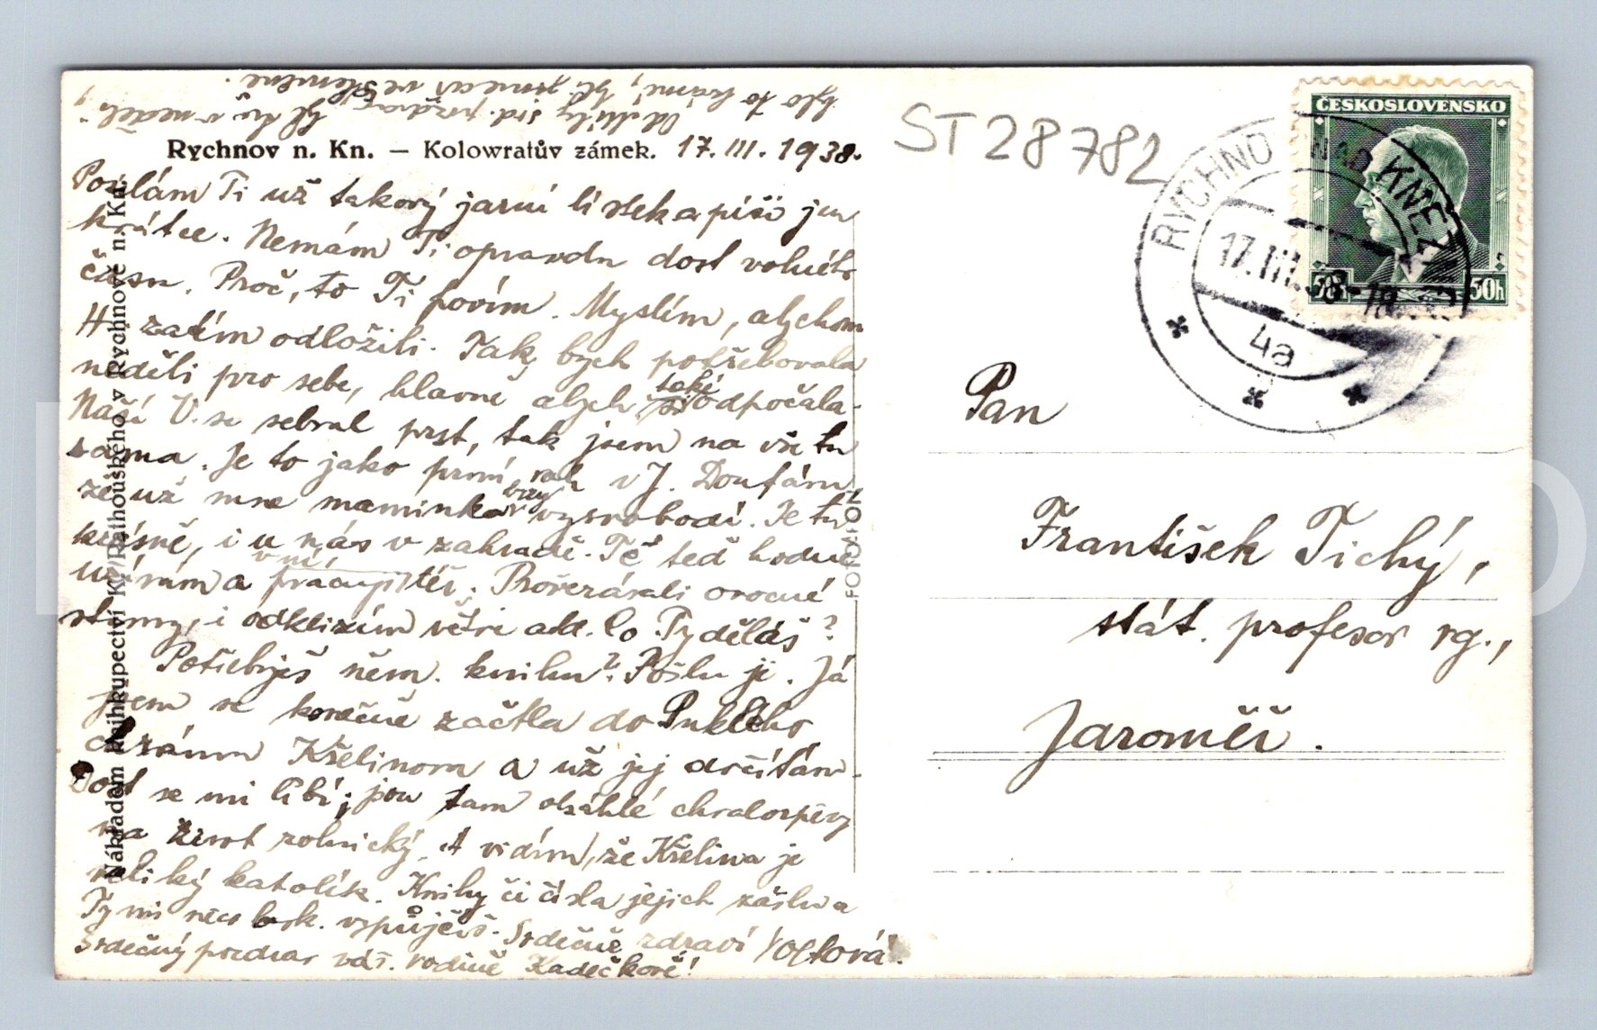 Rychnov n. Kn. — Kolowratův zámek. 17. III. 1938.
Posílám Ti už takový jarní lístek a píši jen
krátce. Nemám Ti opravdu dost volného
času. Proč, to Ti povím. Myslím, abychom
H. zatím odložili. Tak bych potřebovala
neděli pro sebe, hlavně abych si také odpočala.
Naší V. se sebral prst, tak jsem na vše tu
sama. Je to jako první v J. Doufám,
že už mne maminka brzy vysvobodí. Je tu
krásně, i u nás v zahradě. Též teď hodně
v ní pracuji též. Prořezávali ovocné
stromy, i odklízím větve atd. Co Ty děláš?
Potřebuješ něm. knihu? Pošlu ji. Já
jsem se konečně začtla do Puklého
chrámu Křelinova a už jej dočítám.
Dost se mi líbí; jsou tam obsáhlé chvalozpěvy
na život rolnický. A vidím, že Křelina je
veliký katolík. Knihy či čísla jejich zašlu a
Ty mi něco lask. vypůjčíš. Srdečně zdraví Voglová.
Srdečný pozdrav váž. rodině Kadečkově!
Od Míly srd. pozdrav
Nákladem knihkupectví K. Rathouského v Rychnově n. Kn.
FOTO-FON
ST 28 782
ČESKOSLOVENSKO
50h
50h
RYCHNOV NAD KNĚŽ
17. III. 38 - 18
4a
Pan
František Tichý,
stát. profesor rg.,
Jaroměř.